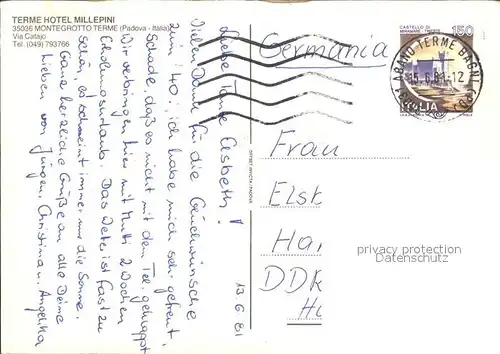 TERME HOTEL MILLEPINI
35036 MONTEGROTTO TERME (Padova - Italia)
Via Catajo
Tel. (049) 793766
13.6.81
Liebe Tante Elsbeth!
Vielen Dank für die Glückwünsche
zum "40", ich habe mich sehr gefreut.
Schade, daß es nicht mit dem Tel. geklappt
Wir verbringen hier mit Mutti 2 Wochen
Erholungsurlaub. Das Wetter ist fast zu
schön, es scheint immer nur die Sonne.
Ganz herzliche Grüße an alle Deine
Lieben von Jürgen, Christina u. Angelika
Germania
CASTELLO DI
MIRAMARE - TRIESTE
150
ITALIA
ABANO TERME BAGNI (PD)
15.6.81-12
Frau
Elsb
Har
DDR
privacy protection
Datenschutz